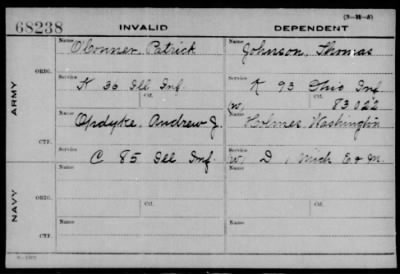 (3-H-A)
68238 INVALID DEPENDENT
ARMY
ORIG.
Name OConner, Patrick
Name Johnson, Thomas
Service K 36 Ill Inf.
Service K 93 Ohio Inf.
Ctf.
W, 83022
CTF.
Name Opdyke, Andrew J.
Name Holmes, Washington
Service C 85 Ill Inf.
Service W, D 1 Mich E & M.
NAVY
ORIG.
Name
Name
Service
Service
Ctf.
CTF.
Name
Name
Service
Service
Ctf.